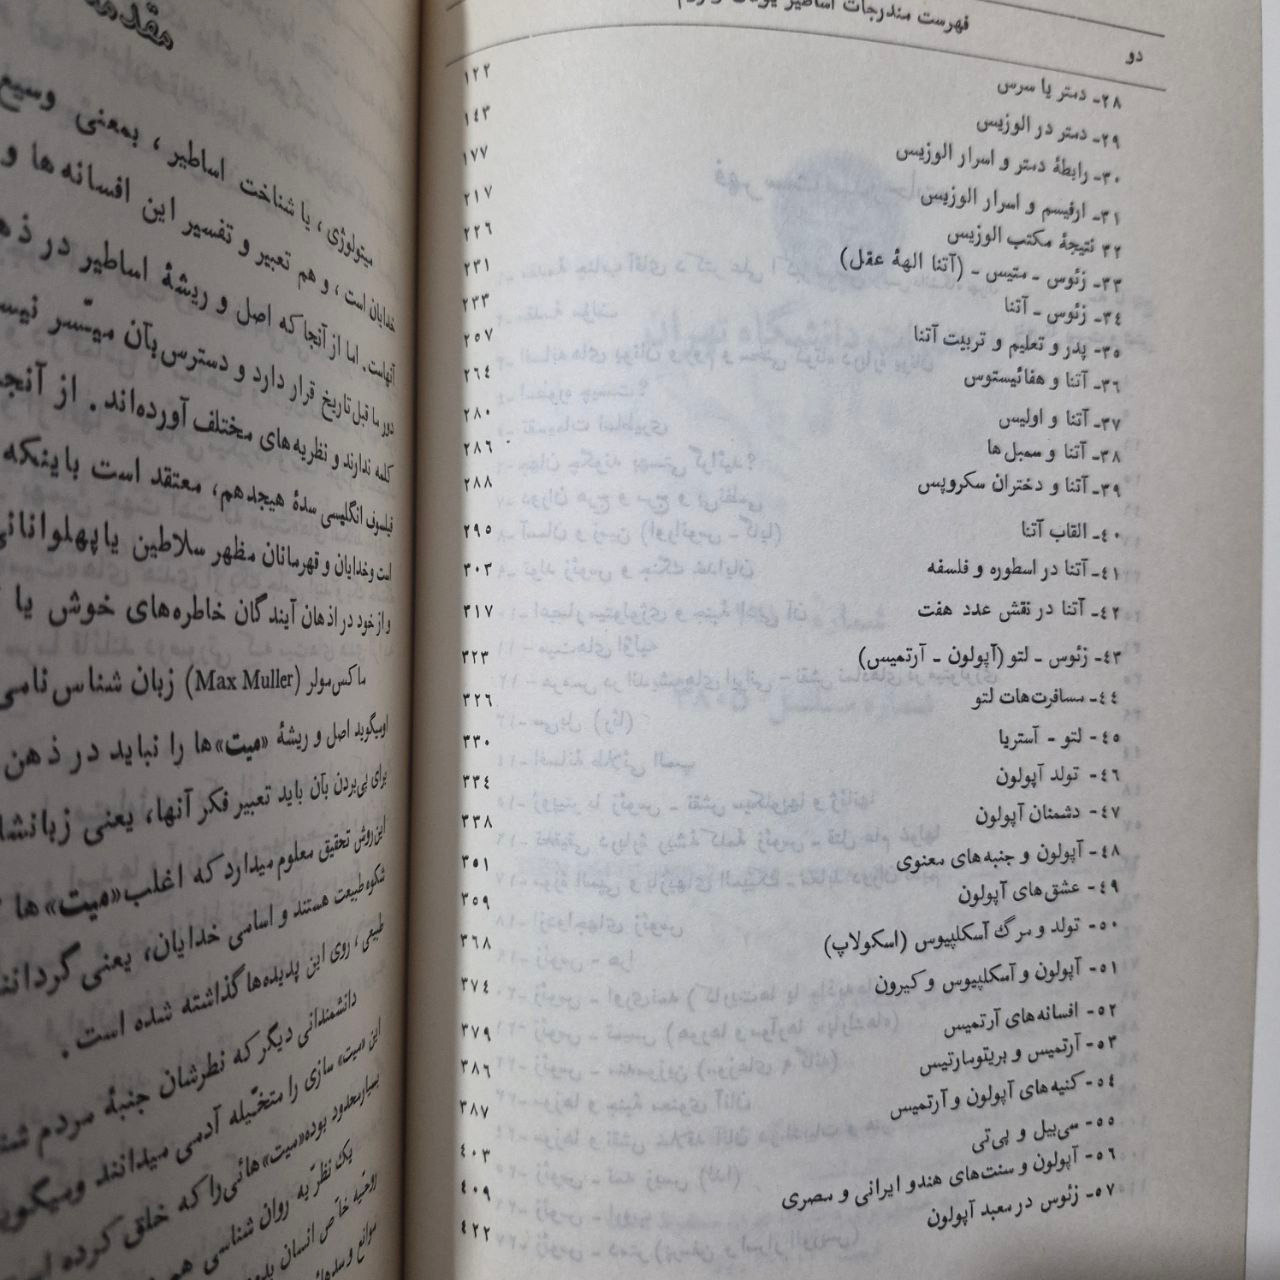 فهرست مندرجات اساطیر یونان و روم
دو
۲۸ـ دمتر یا سرس ۱۲۲
۲۹ـ دمتر در الوزیس ۱۴۳
۳۰ـ رابطهٔ دمتر و اسرار الوزیس ۱۷۷
۳۱ـ ارفیسم و اسرار الوزیس ۲۱۷
۳۲ نتیجهٔ مکتب الوزیس ۲۲۶
۳۳ـ زئوس ـ متیس ـ (آتنا الههٔ عقل) ۲۳۱
۳۴ـ زئوس ـ آتنا ۲۳۳
۳۵ـ پدر و تعلیم و تربیت آتنا ۲۵۷
۳۶ـ آتنا و هفائیستوس ۲۶۴
۳۷ـ آتنا و اولیس ۲۸۰
۳۸ـ آتنا و سمبل ها ۲۸۶
۳۹ـ آتنا و دختران سکروپس ۲۸۸
۴۰ـ القاب آتنا ۲۹۵
۴۱ـ آتنا در اسطوره و فلسفه ۳۰۳
۴۲ـ آتنا در نقش عدد هفت ۳۱۷
۴۳ـ زئوس ـ لتو (آپولون ـ آرتمیس) ۳۲۳
۴۴ـ مسافرت‌هات لتو ۳۲۶
۴۵ـ لتو ـ آستریا ۳۳۰
۴۶ـ تولد آپولون ۳۳۴
۴۷ـ دشمنان آپولون ۳۳۸
۴۸ـ آپولون و جنبه‌های معنوی ۳۵۱
۴۹ـ عشق‌های آپولون ۳۵۹
۵۰ـ تولد و مرگ آسکلپیوس (اسکولاپ) ۳۶۸
۵۱ـ آپولون و آسکلپیوس و کیرون ۳۷۴
۵۲ـ افسانه‌های آرتمیس ۳۷۹
۵۳ـ آرتمیس و بریتومارتیس ۳۸۶
۵۴ـ کنیه‌های آپولون و آرتمیس ۳۸۷
۵۵ـ سی‌بیل و پی‌تی ۴۰۳
۵۶ـ آپولون و سنت‌های هندو ایرانی و مصری ۴۰۹
۵۷ـ زئوس در معبد آپولون ۴۲۲
مقدمه
میتولوژی، یا شناخت اساطیر، بمعنی وسیع
خدایان است، و هم تعبیر و تفسیر این افسانه ها و
آنهاست. اما از آنجا که اصل و ریشهٔ اساطیر در
دور ما قبل تاریخ قرار دارد و دسترس بآن میسّر
کلمه ندارند و نظریه‌های مختلف آورده‌اند. از
فیلسوف انگلیسی سدهٔ هیجدهم، معتقد است باینکه
است و خدایان و قهرمانان مظهر سلاطین یا پهلوانانی
و از خود در اذهان آیندگان خاطره‌های خوش یا
ماکس مولر (Max Muller) زبان شناس نامی
او میگوید اصل و ریشهٔ «میت»ها را نباید در ذهن
برای پی‌بردن بآن باید تعبیر فکر آنها، یعنی
این روش تحقیق معلوم میدارد که اغلب «میت» ها
شکوه طبیعت هستند و اسامی خدایان، یعنی
طبیعی، روی این پدیده‌ها گذاشته شده است.
دانشمندانی دیگر که نظرشان جنبهٔ مردم
این «میت» سازی را متخیّله آدمی میدانند
بسیار معدود بوده «میت» هائی را که خلق کرده
یک نظر به روان شناسی هم
روحیه خاص انسان